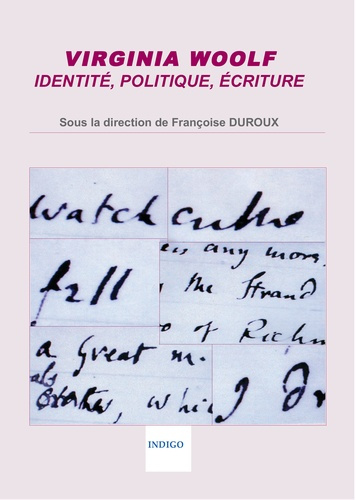 VIRGINIA WOOLF
IDENTITÉ, POLITIQUE, ÉCRITURE
Sous la direction de Françoise DUROUX
watch
any more
fell
the Strand
of Richm
a great m.
whi
INDIGO